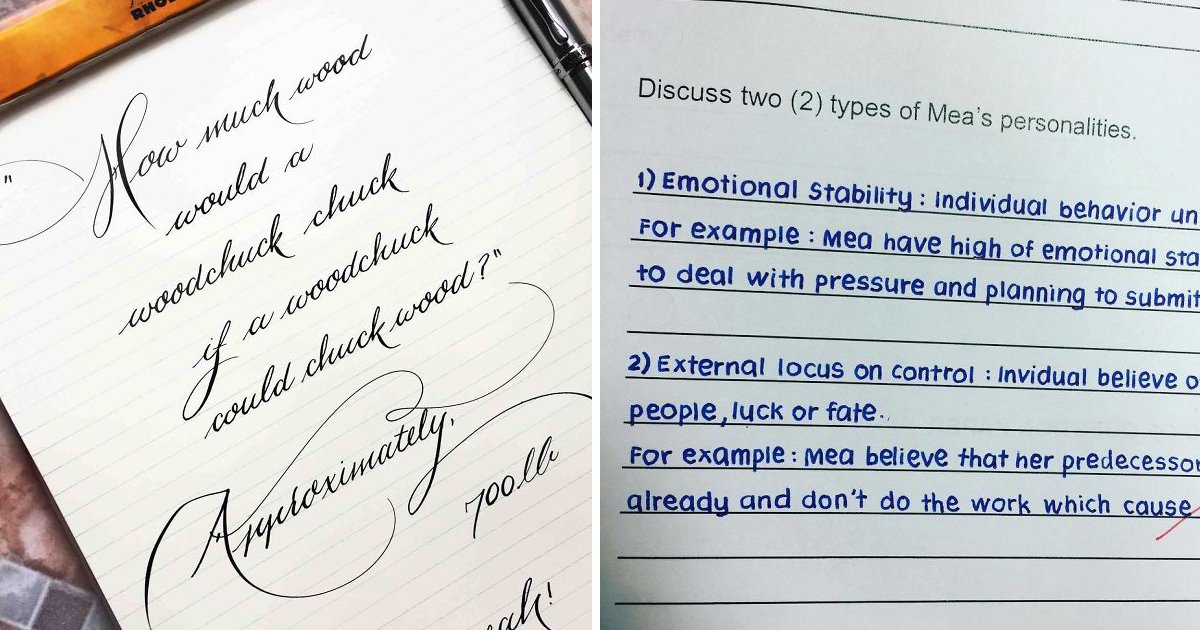 RHO
"How much wood
would a
woodchuck chuck
if a woodchuck
could chuck wood?"
Approximately,
700 lb
Discuss two (2) types of Mea's personalities.
1) Emotional Stability : Individual behavior un
For example : Mea have high of emotional sta
to deal with pressure and planning to submit
2) External locus on control : Invidual believe o
people, luck or fate.
For example : Mea believe that her predecessor
already and don't do the work which cause